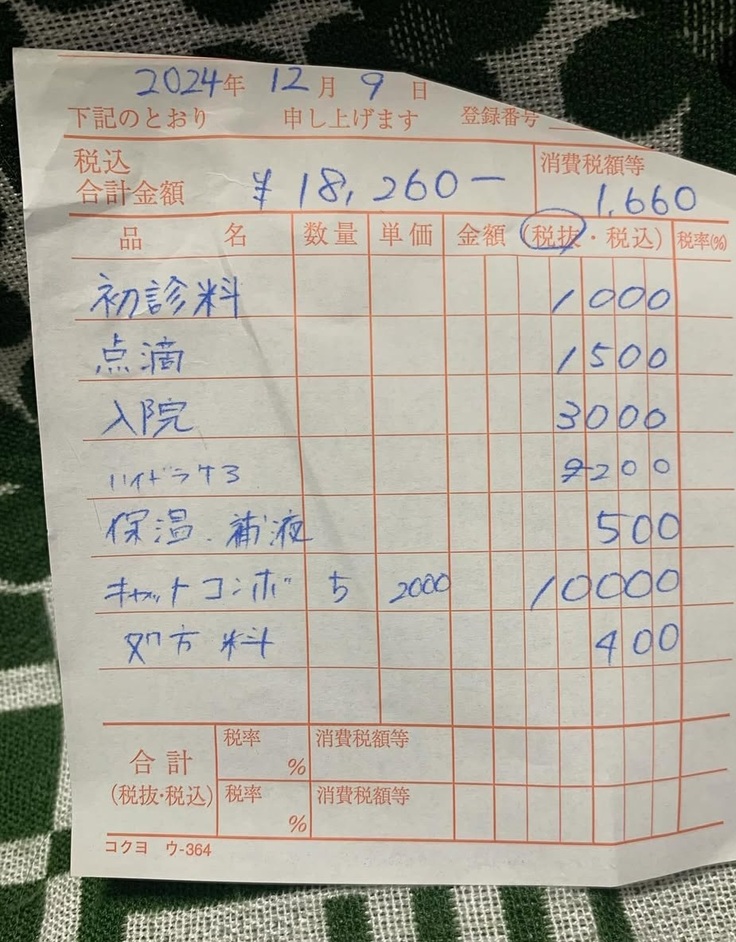 2024年 12月 9日
下記のとおり 申し上げます 登録番号
税込 合計金額 ¥18,260- 消費税額等 1,660
品名 数量 単価 金額(税抜・税込) 税率(%)
初診料 1000
点滴 1500
入院 3000
200
保温、補液 500
キャットコンボ 5 2000 10000
処方料 400
合計 (税抜・税込) 税率 % 消費税額等
税率 % 消費税額等
コクヨ ウ-364